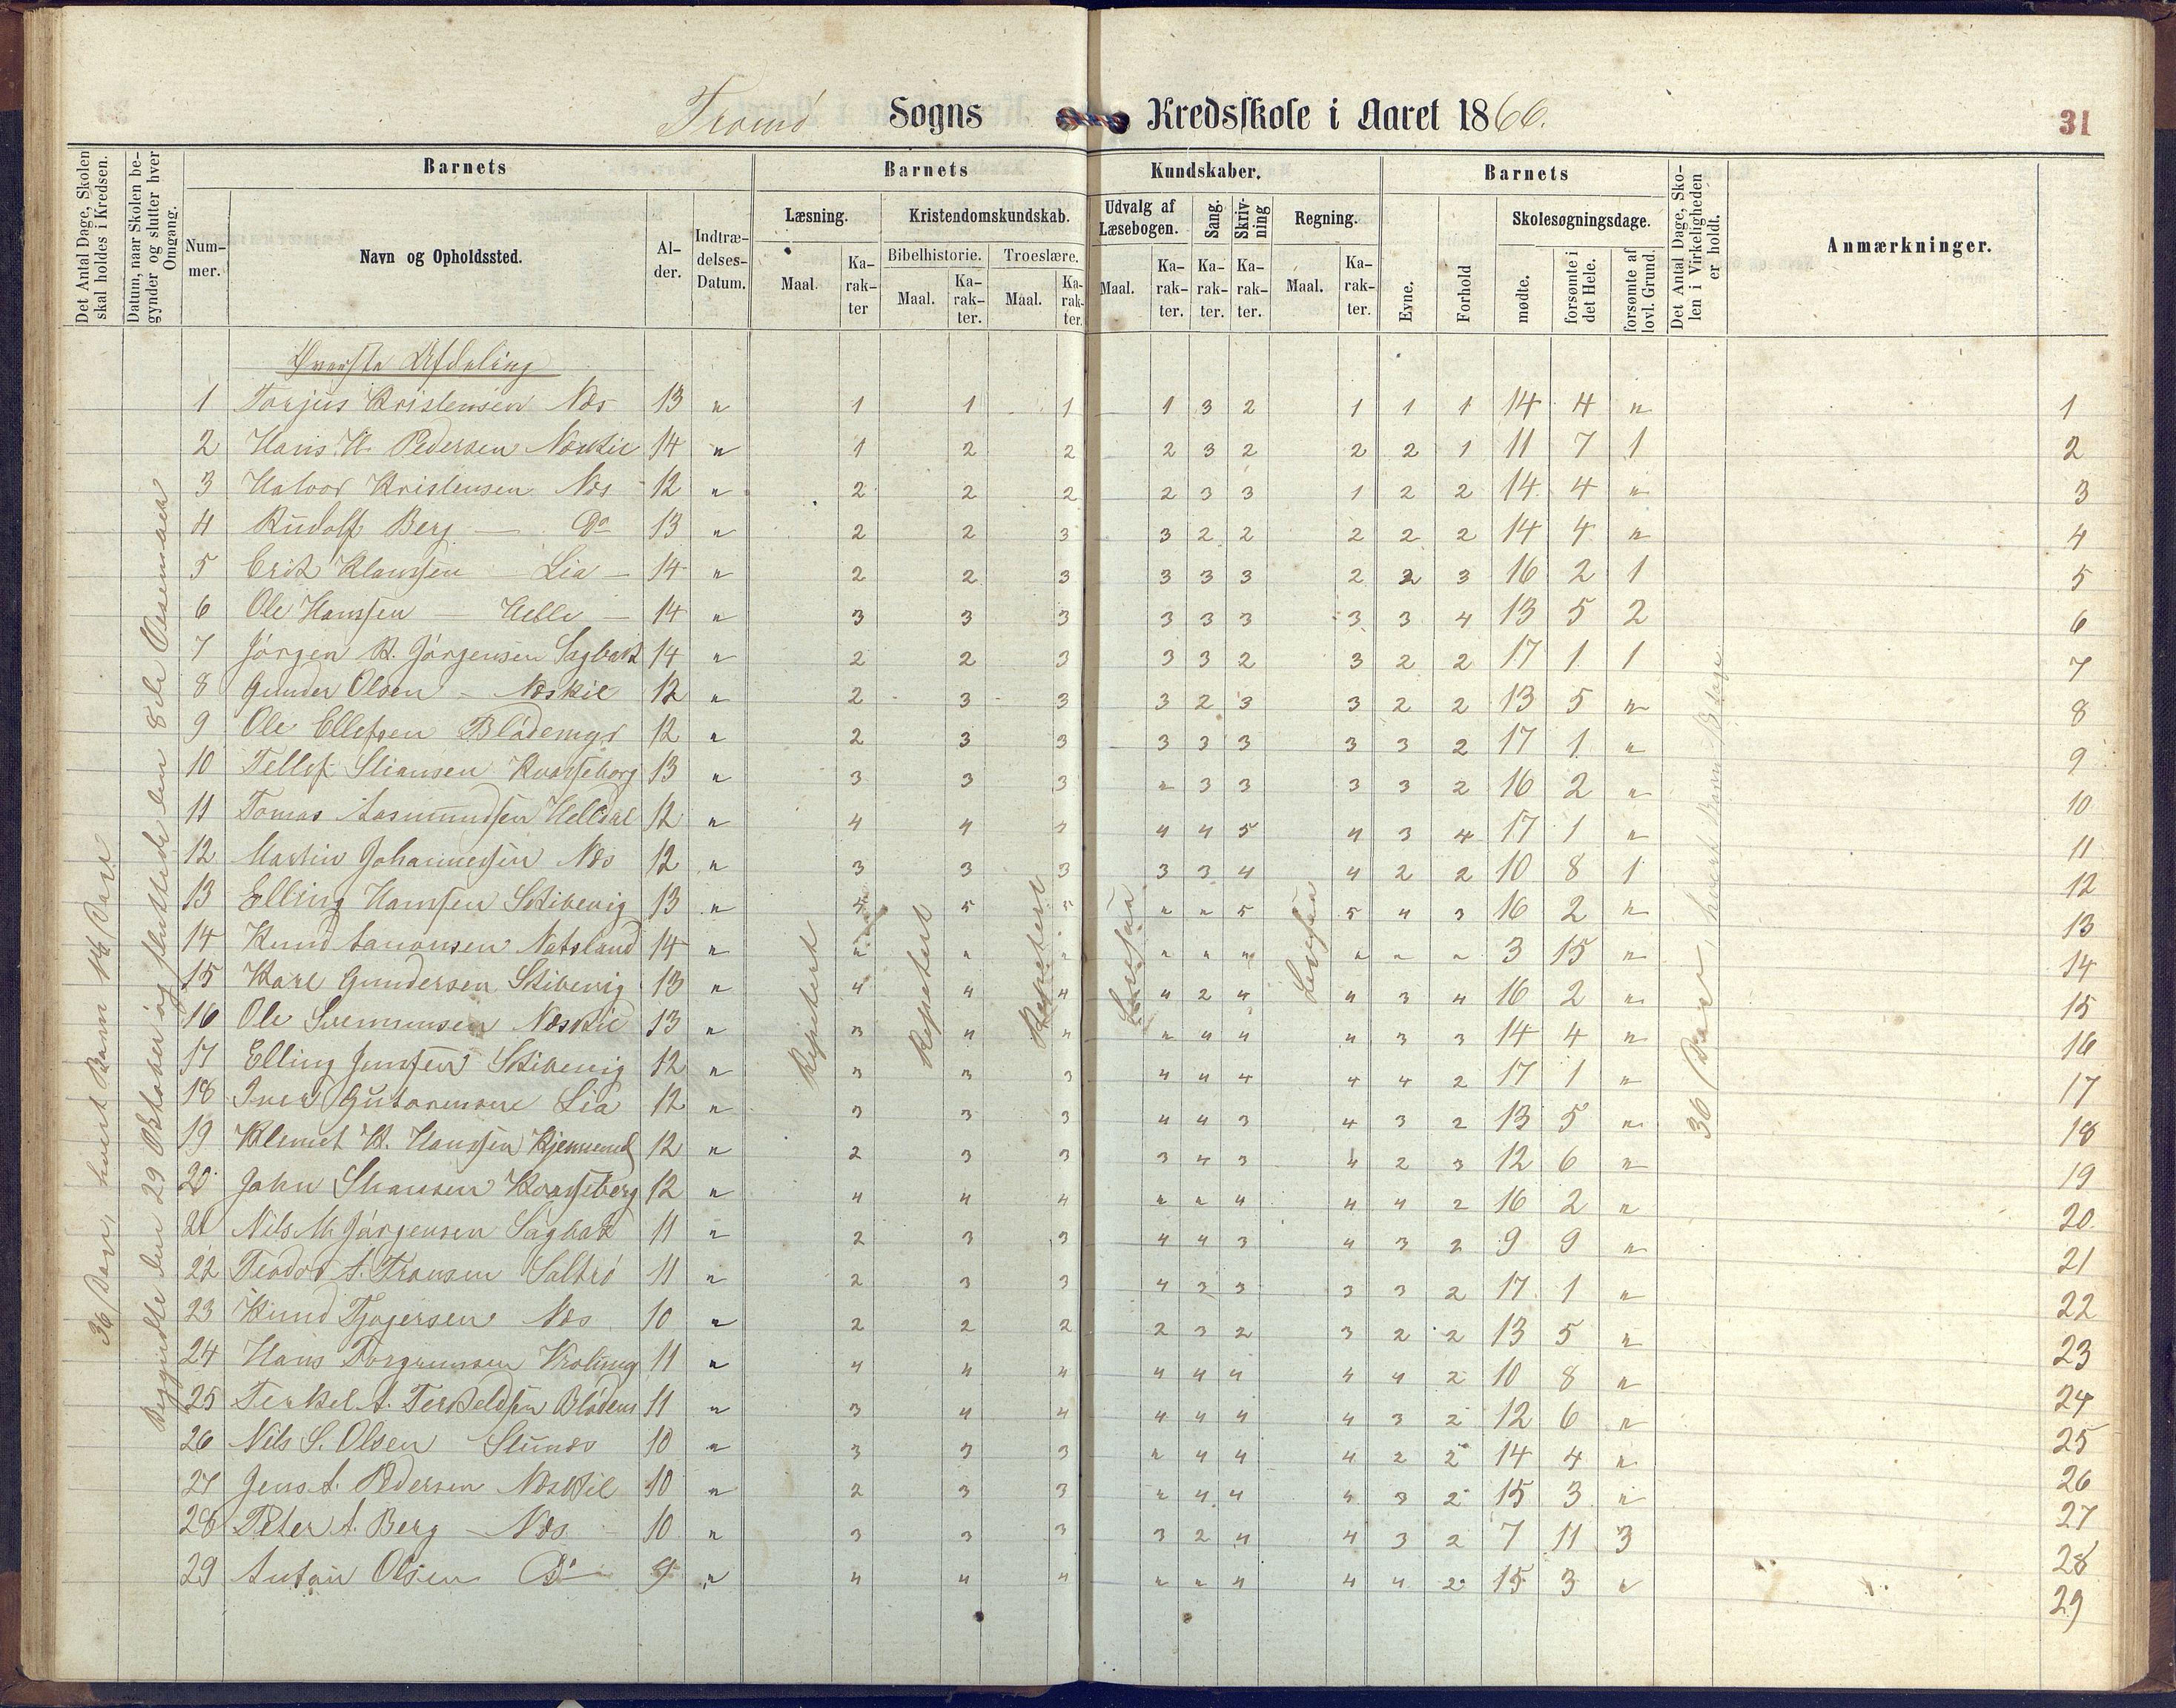 Tromö Sogns Kredsskole i Aaret 1866.
31
Det Antal Dage, Skolen skal holdes i Kredsen.
Datum, naar Skolen begynder og slutter hver Omgang.
Barnets
Barnets
Kundskaber.
Barnets
Det Antal Dage, Skolen i Virkeligheden er holdt.
Anmærkninger.
Nummer.
Navn og Opholdssted.
Alder.
Indtrædelses-Datum.
Læsning.
Kristendomskundskab.
Udvalg af Læsebogen.
Sang.
Skrivning
Regning.
Evne.
Forhold
Skolesøgningsdage.
Bibelhistorie.
Troeslære.
Maal.
Karakter
Maal.
Karakter.
Maal.
Karakter.
Maal.
Karakter.
Karakter.
Karakter.
Maal.
Karakter.
mødte.
forsømte i det Hele.
forsømte af lovl. Grund.
Øverste Afdeling
1 Torjus Kristensen Næs 13 " 1 1 1 1 3 2 1 1 1 14 4 " 1
2 Hans H. Pedersen Næskil 14 " 1 2 2 2 3 2 2 2 1 11 7 1 2
3 Halvor Kristensen Næs 12 " 2 2 2 2 3 3 1 2 2 14 4 " 3
4 Rudolf Berg — Do 13 " 2 2 3 3 2 2 2 2 2 14 4 " 4
5 Erik Klausen — Lia — 14 " 2 2 3 3 3 3 2 2 3 16 2 1 5
6 Ole Hanssen — Helle — 14 " 3 3 3 3 3 3 3 3 4 13 5 2 6
7 Jörgen K. Jörgensen Sagbak 14 " 2 2 3 3 3 2 3 2 2 17 1 1 7
8 Gunder Olsen — Næskil 12 " 2 3 3 3 2 3 3 2 2 13 5 " 8
9 Ole Ellefsen Blödemyr 12 " 2 3 3 3 3 3 3 3 2 17 1 " 9
10 Tellef Stiansen Kvasseborg 13 " 3 3 3 " 3 3 3 3 2 16 2 " 10
11 Tomas Aasmundsen Helldal 12 " 4 4 4 4 5 4 3 4 17 1 " 11
12 Martin Johannessen Næs 12 " 3 3 3 3 3 4 4 2 2 10 8 1 12
13 Elling Hanssen Skibevig 13 " 5 5 " " 5 5 4 3 16 2 " 13
14 Knud Natsland 14 " " " " " " " " " " 3 15 " 14
15 Karl Gundersen Skibevig 13 " 4 4 4 4 2 4 4 3 4 16 2 " 15
16 Ole Næskil 13 " 3 4 4 4 4 3 3 14 4 " 16
17 Elling Jenssen Skibevig 12 " 3 3 3 4 4 4 4 4 2 17 1 " 17
18 Iver Lia 12 " 3 3 3 4 4 3 4 3 2 13 5 " 18
19 Klemet K. Hanssen 12 " 2 3 3 3 4 3 4 2 3 12 6 " 19
20 John Stiansen Kvasseborg 12 " 4 4 4 " " 4 4 4 2 16 2 " 20
21 Nils M. Jörgensen Sagbak 11 " 2 3 3 4 4 3 4 3 2 9 9 " 21
22 Teodor A. Fransen Saltrö 11 " 2 3 3 4 3 3 3 3 2 17 1 " 22
23 Knud Tjøgersen Næs 10 " 2 2 2 2 3 2 3 2 2 13 5 " 23
24 Hans 11 " 4 4 4 4 4 4 4 4 2 10 8 " 24
25 Terkel A. Terkeldsen Blödem 11 " 3 4 4 4 4 4 4 3 2 12 6 " 25
26 Nils S. Olsen 10 " 3 3 3 " 4 4 4 2 2 14 4 " 26
27 Jens A. Pedersen Næskil 10 " 2 3 3 " 4 4 4 3 2 15 3 " 27
28 Peter A. Berg — Næs 10 " 3 3 3 3 2 4 4 3 2 7 11 3 28
29 Anton Olsen Do 9 " 4 4 4 " " 4 4 4 2 15 3 " 29
36 Dage, hvert Barn 18 Dage
Begyndte den 29 Oktober og sluttede den 8de Desember
Repetert
Repetert
Repetert
Ligesaa
Ligesaa
36 Dage, hvert Barn 18 Dage.